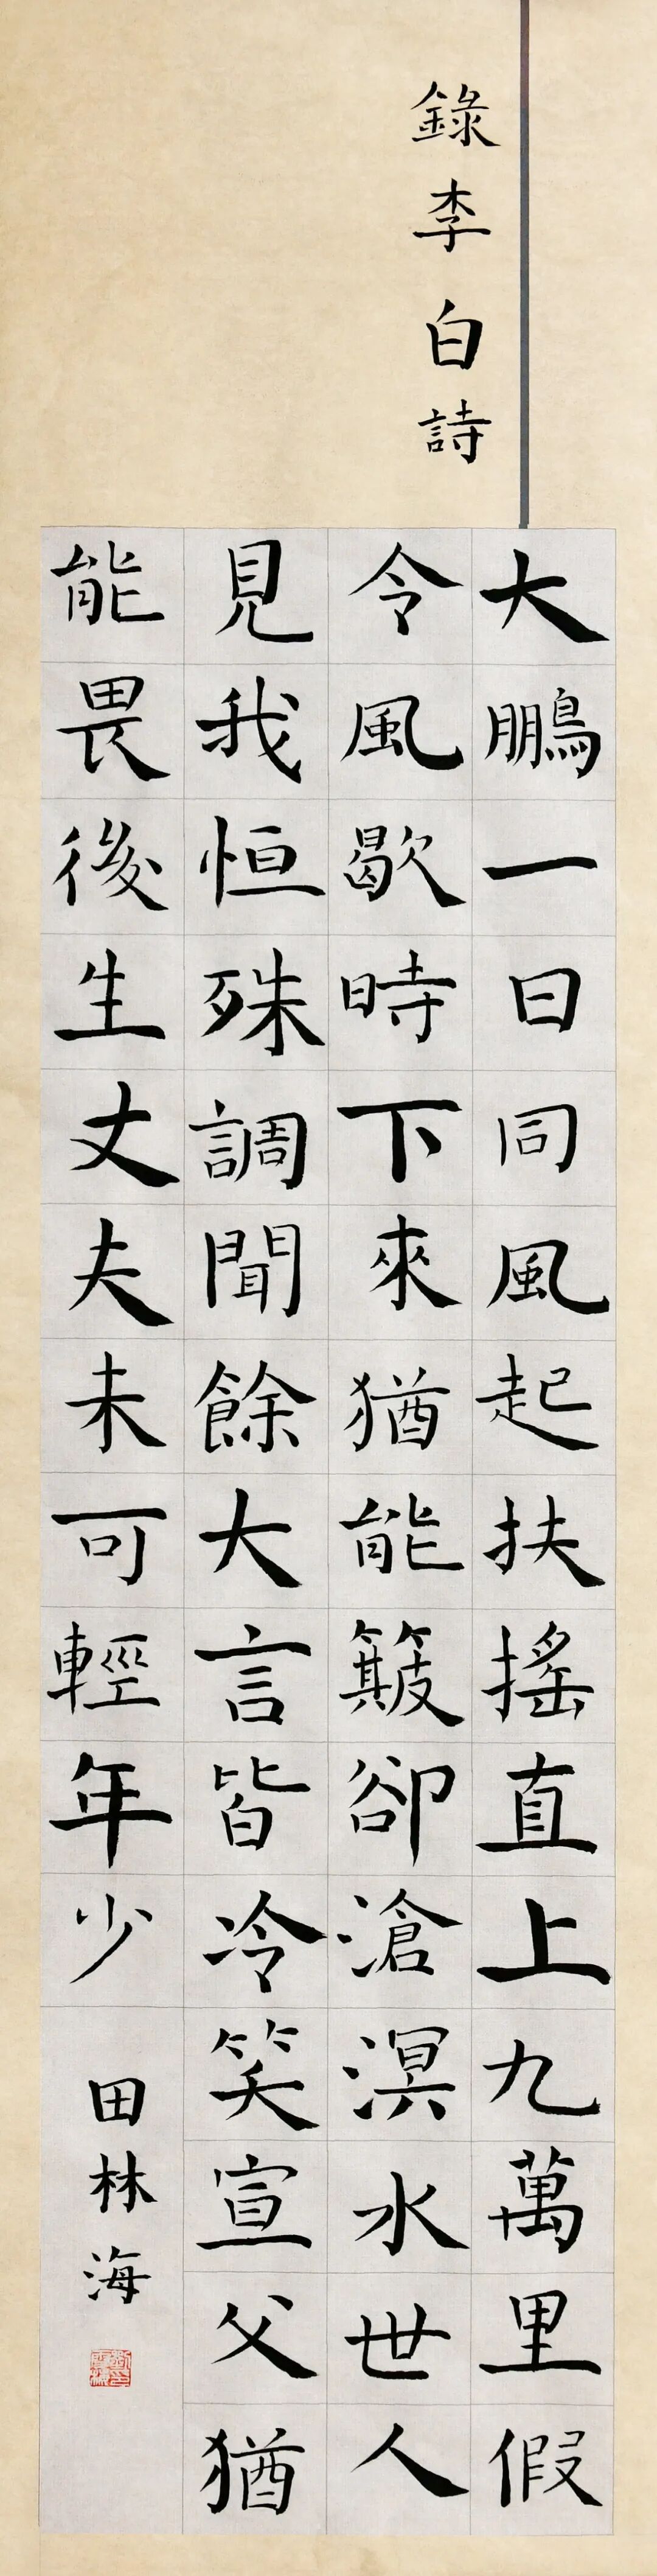 錄李白詩
大鵬一日同風起扶搖直上九萬里假
令風歇時下來猶能簸卻滄溟水世人
見我恒殊調聞餘大言皆冷笑宣父猶
能畏後生丈夫未可輕年少
田林海